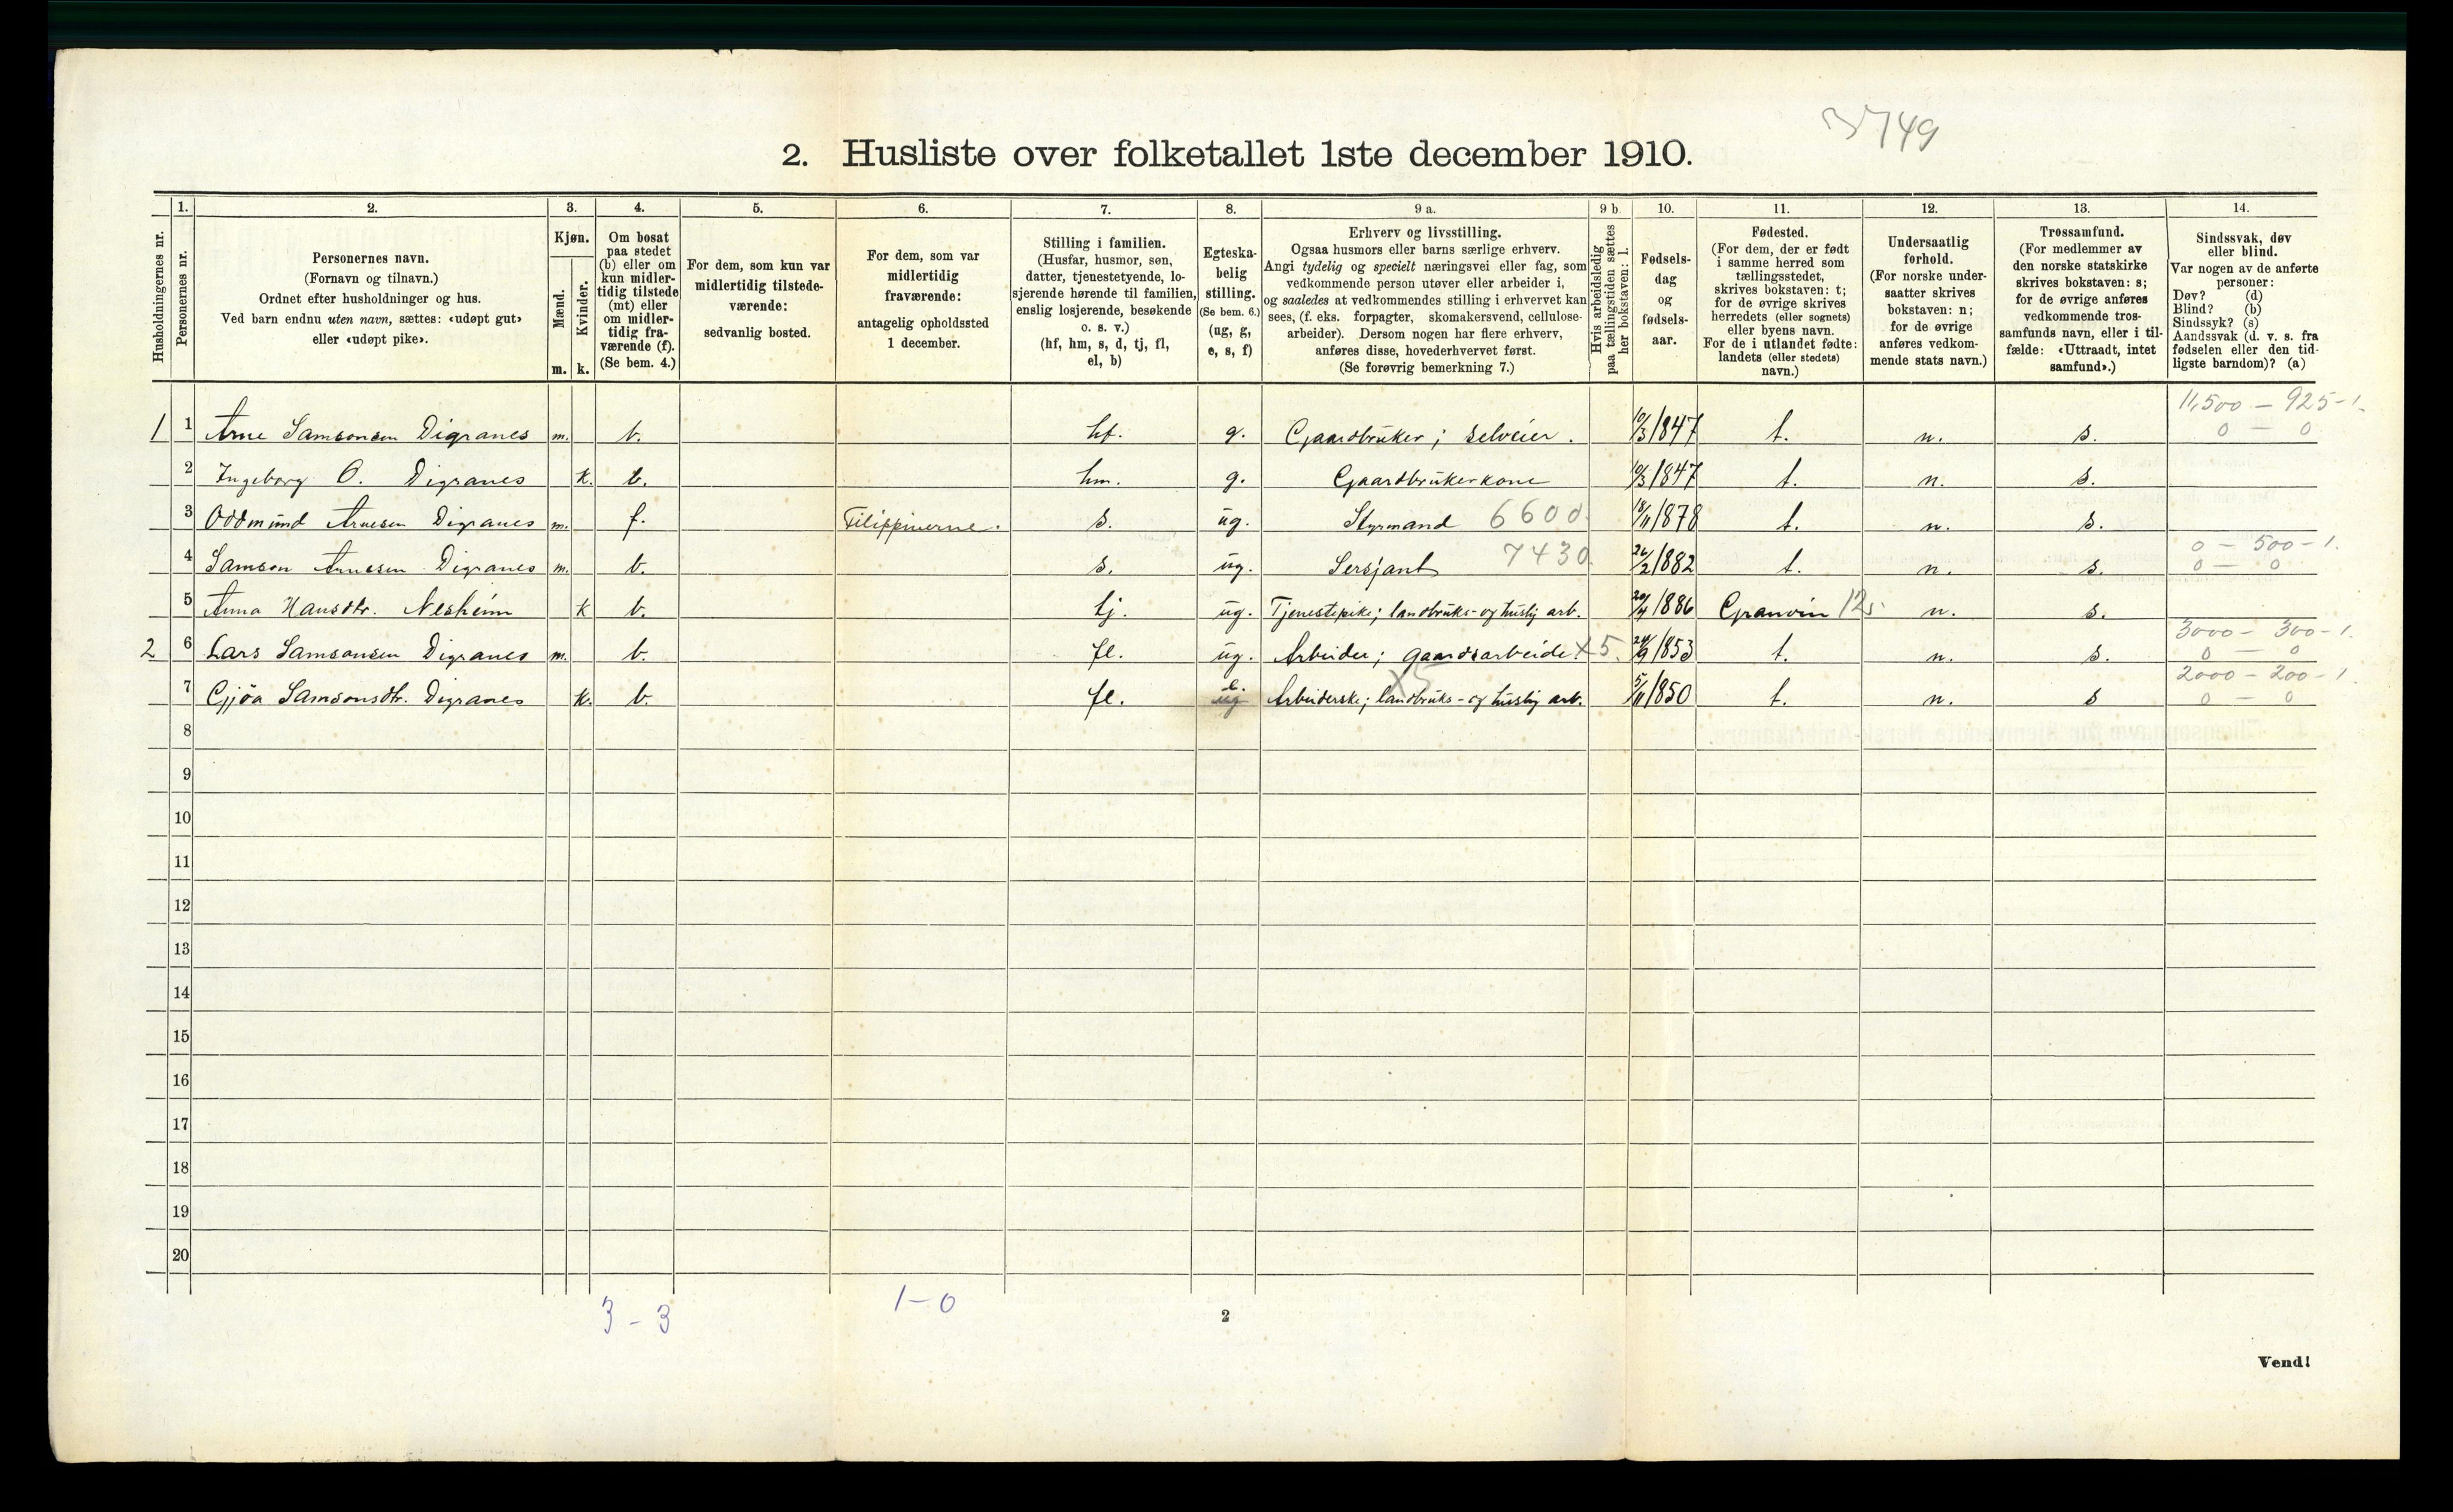 3749
2. Husliste over folketallet 1ste december 1910.
1. 2. 3. 4. 5. 6. 7. 8. 9 a. 9 b. 10. 11. 12. 13. 14.
Husholdningernes nr.
Personernes nr.
Personernes navn.
(Fornavn og tilnavn.)
Ordnet efter husholdninger og hus.
Ved barn endnu uten navn, sættes: «udøpt gut»
eller «udøpt pike».
Kjøn.
Mænd.
Kvinder.
m. k.
Om bosat
paa stedet
(b) eller om
kun midler-
tidig tilstede
(mt) eller
om midler-
tidig fra-
værende (f).
(Se bem. 4.)
For dem, som kun var
midlertidig tilstede-
værende:
sedvanlig bosted.
For dem, som var
midlertidig
fraværende:
antagelig opholdssted
1 december.
Stilling i familien.
(Husfar, husmor, søn,
datter, tjenestetyende, lo-
sjerende hørende til familien,
enslig losjerende, besøkende
o. s. v.)
(hf, hm, s, d, tj, fl,
el, b)
Egteska-
belig
stilling.
(Se bem. 6.)
(ug, g,
e, s, f)
Erhverv og livsstilling.
Ogsaa husmors eller barns særlige erhverv.
Angi tydelig og specielt næringsvei eller fag, som
vedkommende person utøver eller arbeider i,
og saaledes at vedkommendes stilling i erhvervet kan
sees, (f. eks. forpagter, skomakersvend, cellulose-
arbeider). Dersom nogen har flere erhverv,
anføres disse, hovederhvervet først.
(Se forøvrig bemerkning 7.)
Hvis arbeidsledig
paa tællingstiden sættes
her bokstaven: l.
Fødsels-
dag
og
fødsels-
aar.
Fødested.
(For dem, der er født
i samme herred som
tællingsstedet,
skrives bokstaven: t;
for de øvrige skrives
herredets (eller sognets)
eller byens navn.
For de i utlandet fødte:
landets (eller stedets)
navn.)
Undersaatlig
forhold.
(For norske under-
saatter skrives
bokstaven: n;
for de øvrige
anføres vedkom-
mende stats navn.)
Trossamfund.
(For medlemmer av
den norske statskirke
skrives bokstaven: s;
for de øvrige anføres
vedkommende tros-
samfunds navn, eller i til-
fælde: «Uttraadt, intet
samfund».)
Sindssvak, døv
eller blind.
Var nogen av de anførte
personer:
Døv? (d)
Blind? (b)
Sindssyk? (s)
Aandssvak (d. v. s. fra
fødselen eller den tid-
ligste barndom)? (a)
11,500 – 925 – 1.
1 1 Arne Samsonsen Digranes m. b. hf. g. Gaardbruker; selveier. 10/3 1847 t. n. s. 0 – 0
2 Ingeborg O. Digranes k. b. hm. g. Gaardbrukerkone 10/3 1847 t. n. s.
3 Oddmund Arnesen Digranes m. f. Filippinerne. s. ug. Styrmand 6600. 18/11 1878 t. n. s.
0 – 500 – 1.
4 Samson Arnesen Digranes m. b. s. ug. Sersjant 7430. 26/2 1882 t. n. s. 0 – 0
5 Anna Hansdtr. Nesheim k b. tj. ug. Tjenestepike; landbruks- og huslig arb. 20/4 1886 Granvin 12 n. s.
3000 – 300 – 1.
2 6 Lars Samsonsen Digranes m. b. fl. ug. Arbeider; gaardsarbeide. X5. 24/9 1853 t. n. s. 0 – 0
2000 – 200 – 1.
7 Gjøa Samsonsdtr. Digranes k. b. fl. e. ug Arbeiderske; landbruks- og huslig arb. X5 5/11 1850 t. n. s 0 – 0
8
9
10
11
12
13
14
15
16
17
18
19
20
3 – 3
1 – 0
2
Vend!